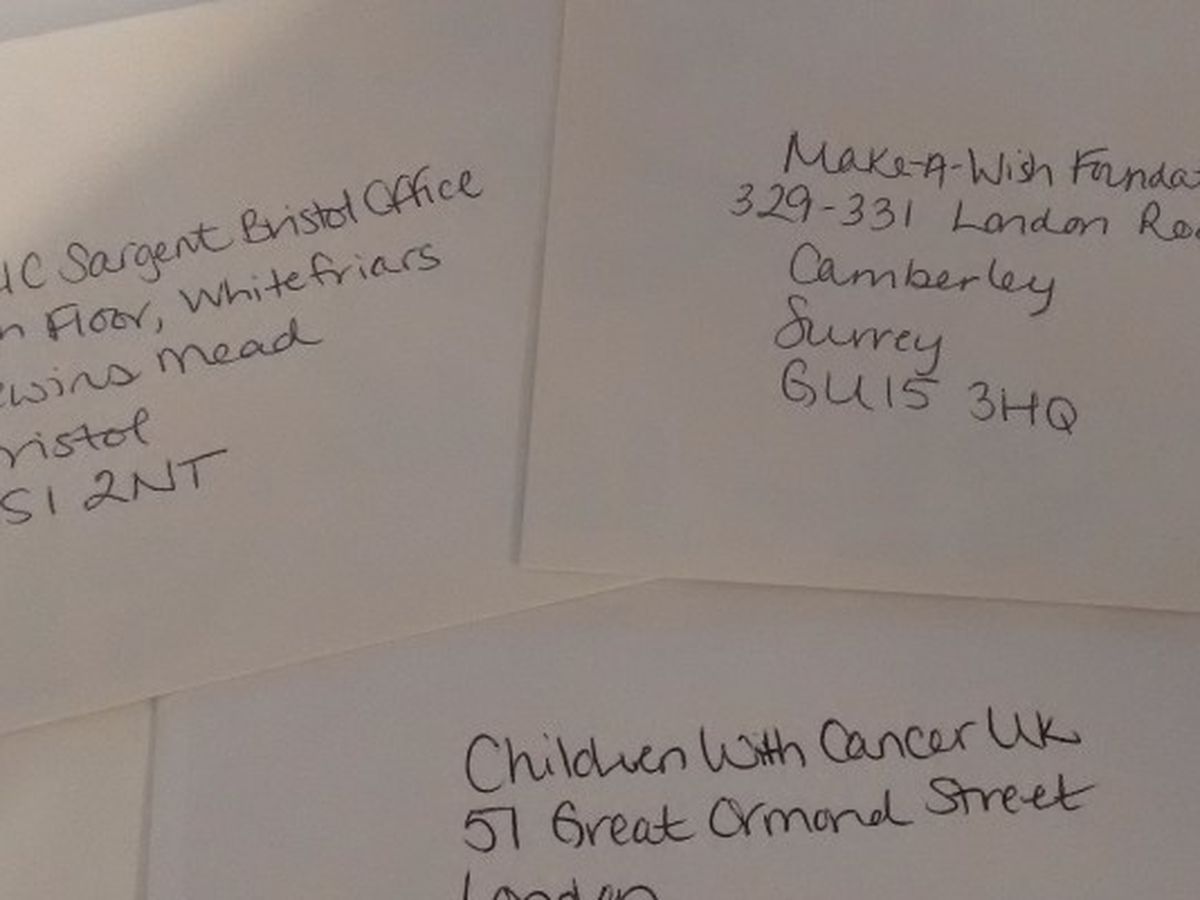 IC Sargent Bristol Office
n Floor, Whitefriars
ewins Mead
ristol
S1 2NT
Make-A-Wish Foundat
329-331 London Roa
Camberley
Surrey
GU15 3HQ
Children With Cancer UK
51 Great Ormond Street
London